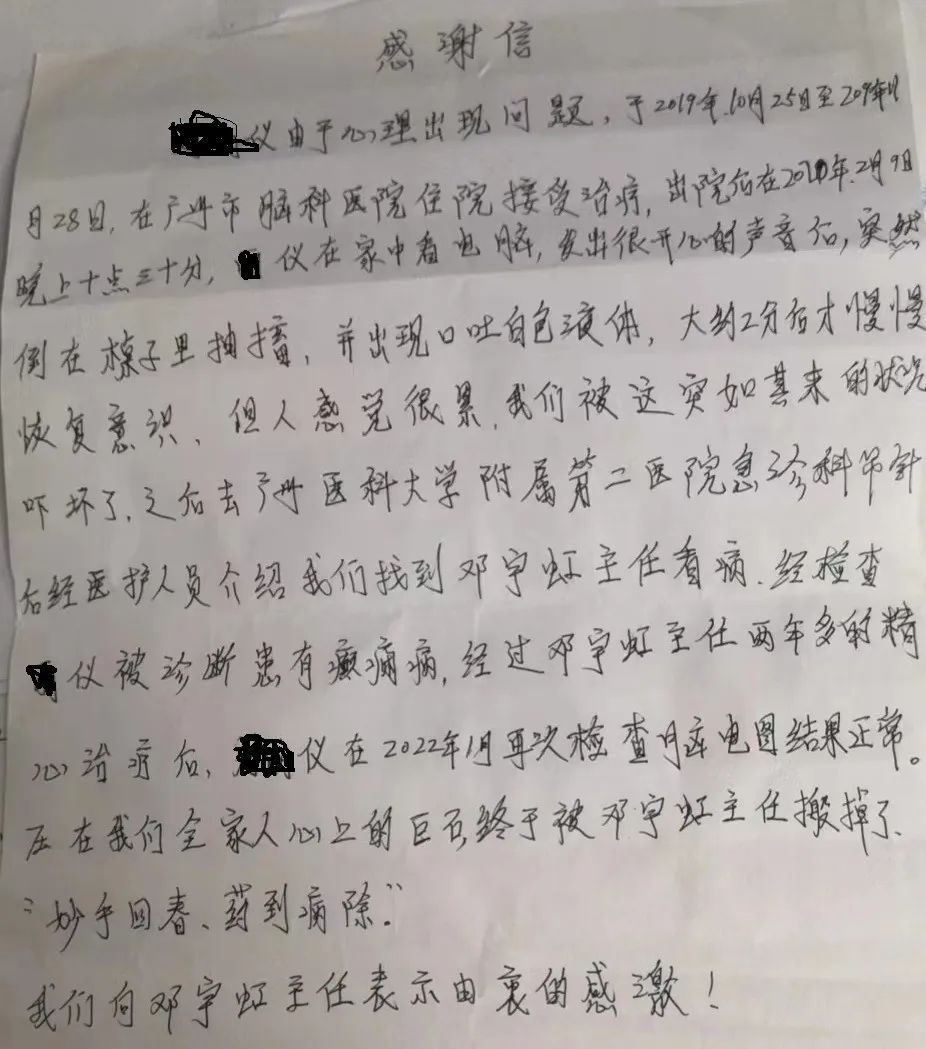 感谢信
仪由于心理出现问题，于2019年.10月25日至2019年11
月28日，在广州市脑科医院住院接受治疗，出院后在2020年.2月9日
晚上十点三十分，仪在家中看电脑，发出很开心的声音后，突然
倒在椅子里抽搐，并出现口吐白色液体，大约2分后才慢慢
恢复意识、但人感觉很累，我们被这突如其来的状况
吓坏了，之后去广州医科大学附属第二医院急诊科吊针
后经医护人员介绍我们找到邓宇虹主任看病．经检查
仪被诊断患有癫痫病，经过邓宇虹主任两年多的精
心治疗后，仪在2022年1月再次检查脑电图结果正常。
压在我们全家人心上的巨石终于被邓宇虹主任搬掉了、
“妙手回春、药到病除”
我们向邓宇虹主任表示由衷的感激！